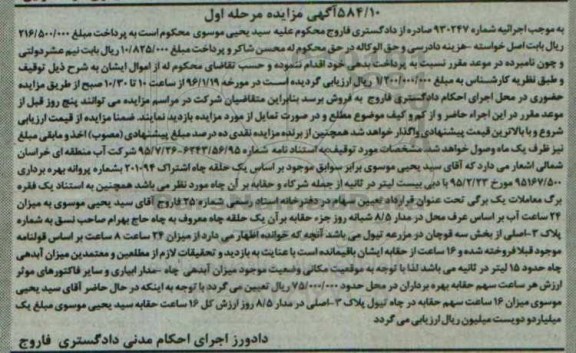 ۵۸۴/۱۰آگهی مزایده مرحله اول
به موجب اجرائیه شماره ۹۳۰۲۴۷ صادره از دادگستری فاروج محکوم علیه سید یحیی موسوی محکوم است به پرداخت مبلغ ۲۱۶/۵۰۰/۰۰۰
ریال بابت اصل خواسته -هزینه دادرسی و حق الوکاله در حق محکوم له محسن شاکر و پرداخت مبلغ ۱۰/۸۲۵/۰۰۰ ریال بابت نیم عشر دولتی
و چون نامبرده در موعد مقرر نسبت به پرداخت بدهی خود اقدام ننموده و حسب تقاضای محکوم له از اموال ایشان به شرح ذیل توقیف
و طبق نظریه کارشناس به مبلغ ۱/۲۰۰/۰۰۰/۰۰۰ ریال ارزیابی گردیده است در مورخه ۹۶/۱/۱۹ از ساعت ۱۰ تا ۱۰/۳۰ صبح از طریق مزایده
حضوری در محل اجرای احکام دادگستری فاروج به فروش برسد بنابراین متقاضیان شرکت در مراسم مزایده می توانند پنج روز قبل از
موعد مقرر در این اجراء حاضر و از کم و کیف موضوع مطلع و در صورت تمایل از مورد مزایده بازدید نمایند. ضمنا مزایده از قیمت ارزیابی
شروع و با بالاترین قیمت پیشنهادی واگذار خواهد شد همچنین از برنده مزایده نقدی ده درصد مبلغ پیشنهادی (مصوب) اخذ و مابقی مبلغ
نیز ظرف یک ماه وصول خواهد شد. مشخصات مورد توقیف:به استناد نامه شماره ۶۲۴۳/۵۶/۹۵-۹۵/۷/۲۶ شرکت آب منطقه ای خراسان
شمالی اشعار می دارد که آقای سید یحیی موسوی برابر سوابق موجود بر اساس یک حلقه چاه اشتراک ۲۰۱-۹۴ بشماره پروانه بهره برداری
۹۵۱۶۷/۵۰۰ مورخ ۹۵/۲/۲۳ با دبی بیست لیتر در ثانیه از جمله شرکاء و حقابه بر آن چاه مورد نظر می باشد همچنین به استناد یک فقره
برگ معاملات یک برگی تحت عنوان قرارداد تعیین سهام در دفترخانه اسناد رسمی شماره ۲۵ فاروج آقای سید یحیی موسوی به میزان
۲۴ ساعت آب بر اساس عرف محل در مدار ۸/۵ شبانه روز جزء حقابه بر آن یک حلقه چاه معروف به چاه حاج بهرام صاحب نسق به شماره
پلاک ۳-اصلی از بخش سه قوچان در مزرعه تیول می باشد آنچه که خوانده اظهار می دارد از میزان ۲۴ ساعت ۸ ساعت بر اساس قولنامه
موجود قبلا فروخته شده و ۱۶ ساعت از حقابه ایشان باقیمانده است با عنایت به بازدید و تحقیقات لازم از مطلعین و معتمدین میزان آبدهی
چاه حدود ۱۵ لیتر در ثانیه می باشد لذا با توجه به موقعیت مکانی وضعیت موجود میزان آبدهی چاه -مدار آبیاری و سایر فاکتورهای موثر
ارزش هر ساعت سهم حقابه بهره برداران در محل حدود ۷۵/۰۰۰/۰۰۰ ریال تعیین می گردد با توجه به اینکه در حال حاضر آقای سید یحیی
موسوی میزان ۱۶ ساعت سهم حقابه در چاه تیول پلاک ۳-اصلی در مدار ۸/۵ روز ارزش کل ۱۶ ساعت حقابه سید یحیی موسوی مبلغ یک
میلیارد و دویست میلیون ریال ارزیابی می گردد
دادورز اجرای احکام مدنی دادگستری فاروج